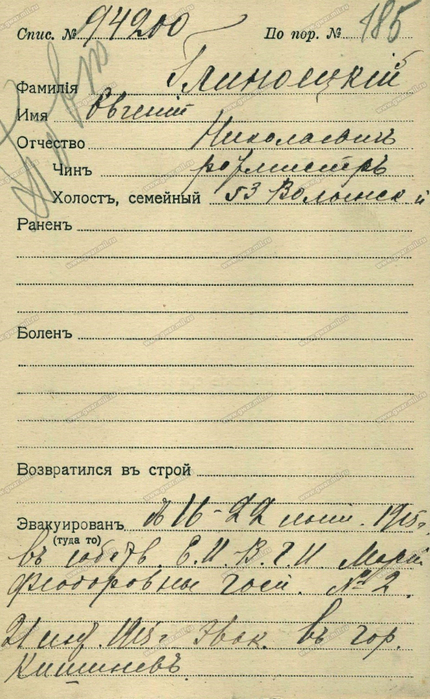 Спис. № 94200 По пор. № 185
Фамилія Глиноецкій
Имя Евгеній
Отчество Николаевич
Чин ротмистръ
Холост, семейный 53 Волынский
Ранен
Болен
Возвратился въ строй
Эвакуирован 16-22 1915 г.
(туда то)
въ Е.И.В.Г.И. Маріи
Феодоровны госп. № 2.
21 1915 г. эвак. въ гор.
Кишиневъ